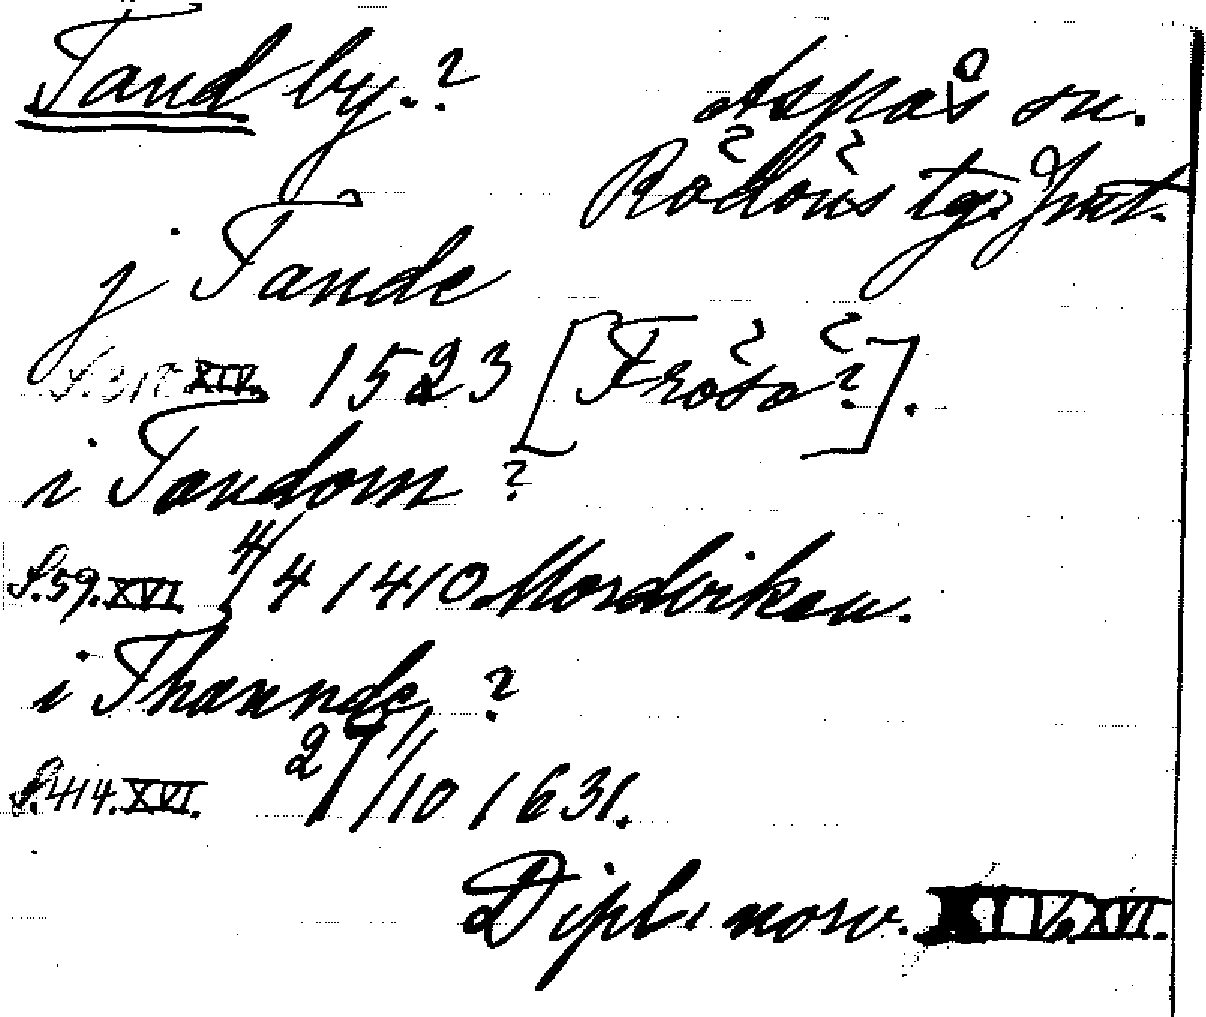 Tand by.? Aspås sn.
Rödöns tg. Jmt.
j Tande
S. 317. XIV. 1523 [Frösö?].
i Tandom ?
S. 59. XVI. 4/4 1410 Mordviken.
i Thannde ?
S. 414. XVI. 27/10 1631.
Dipl. norv. XIV, XVI.